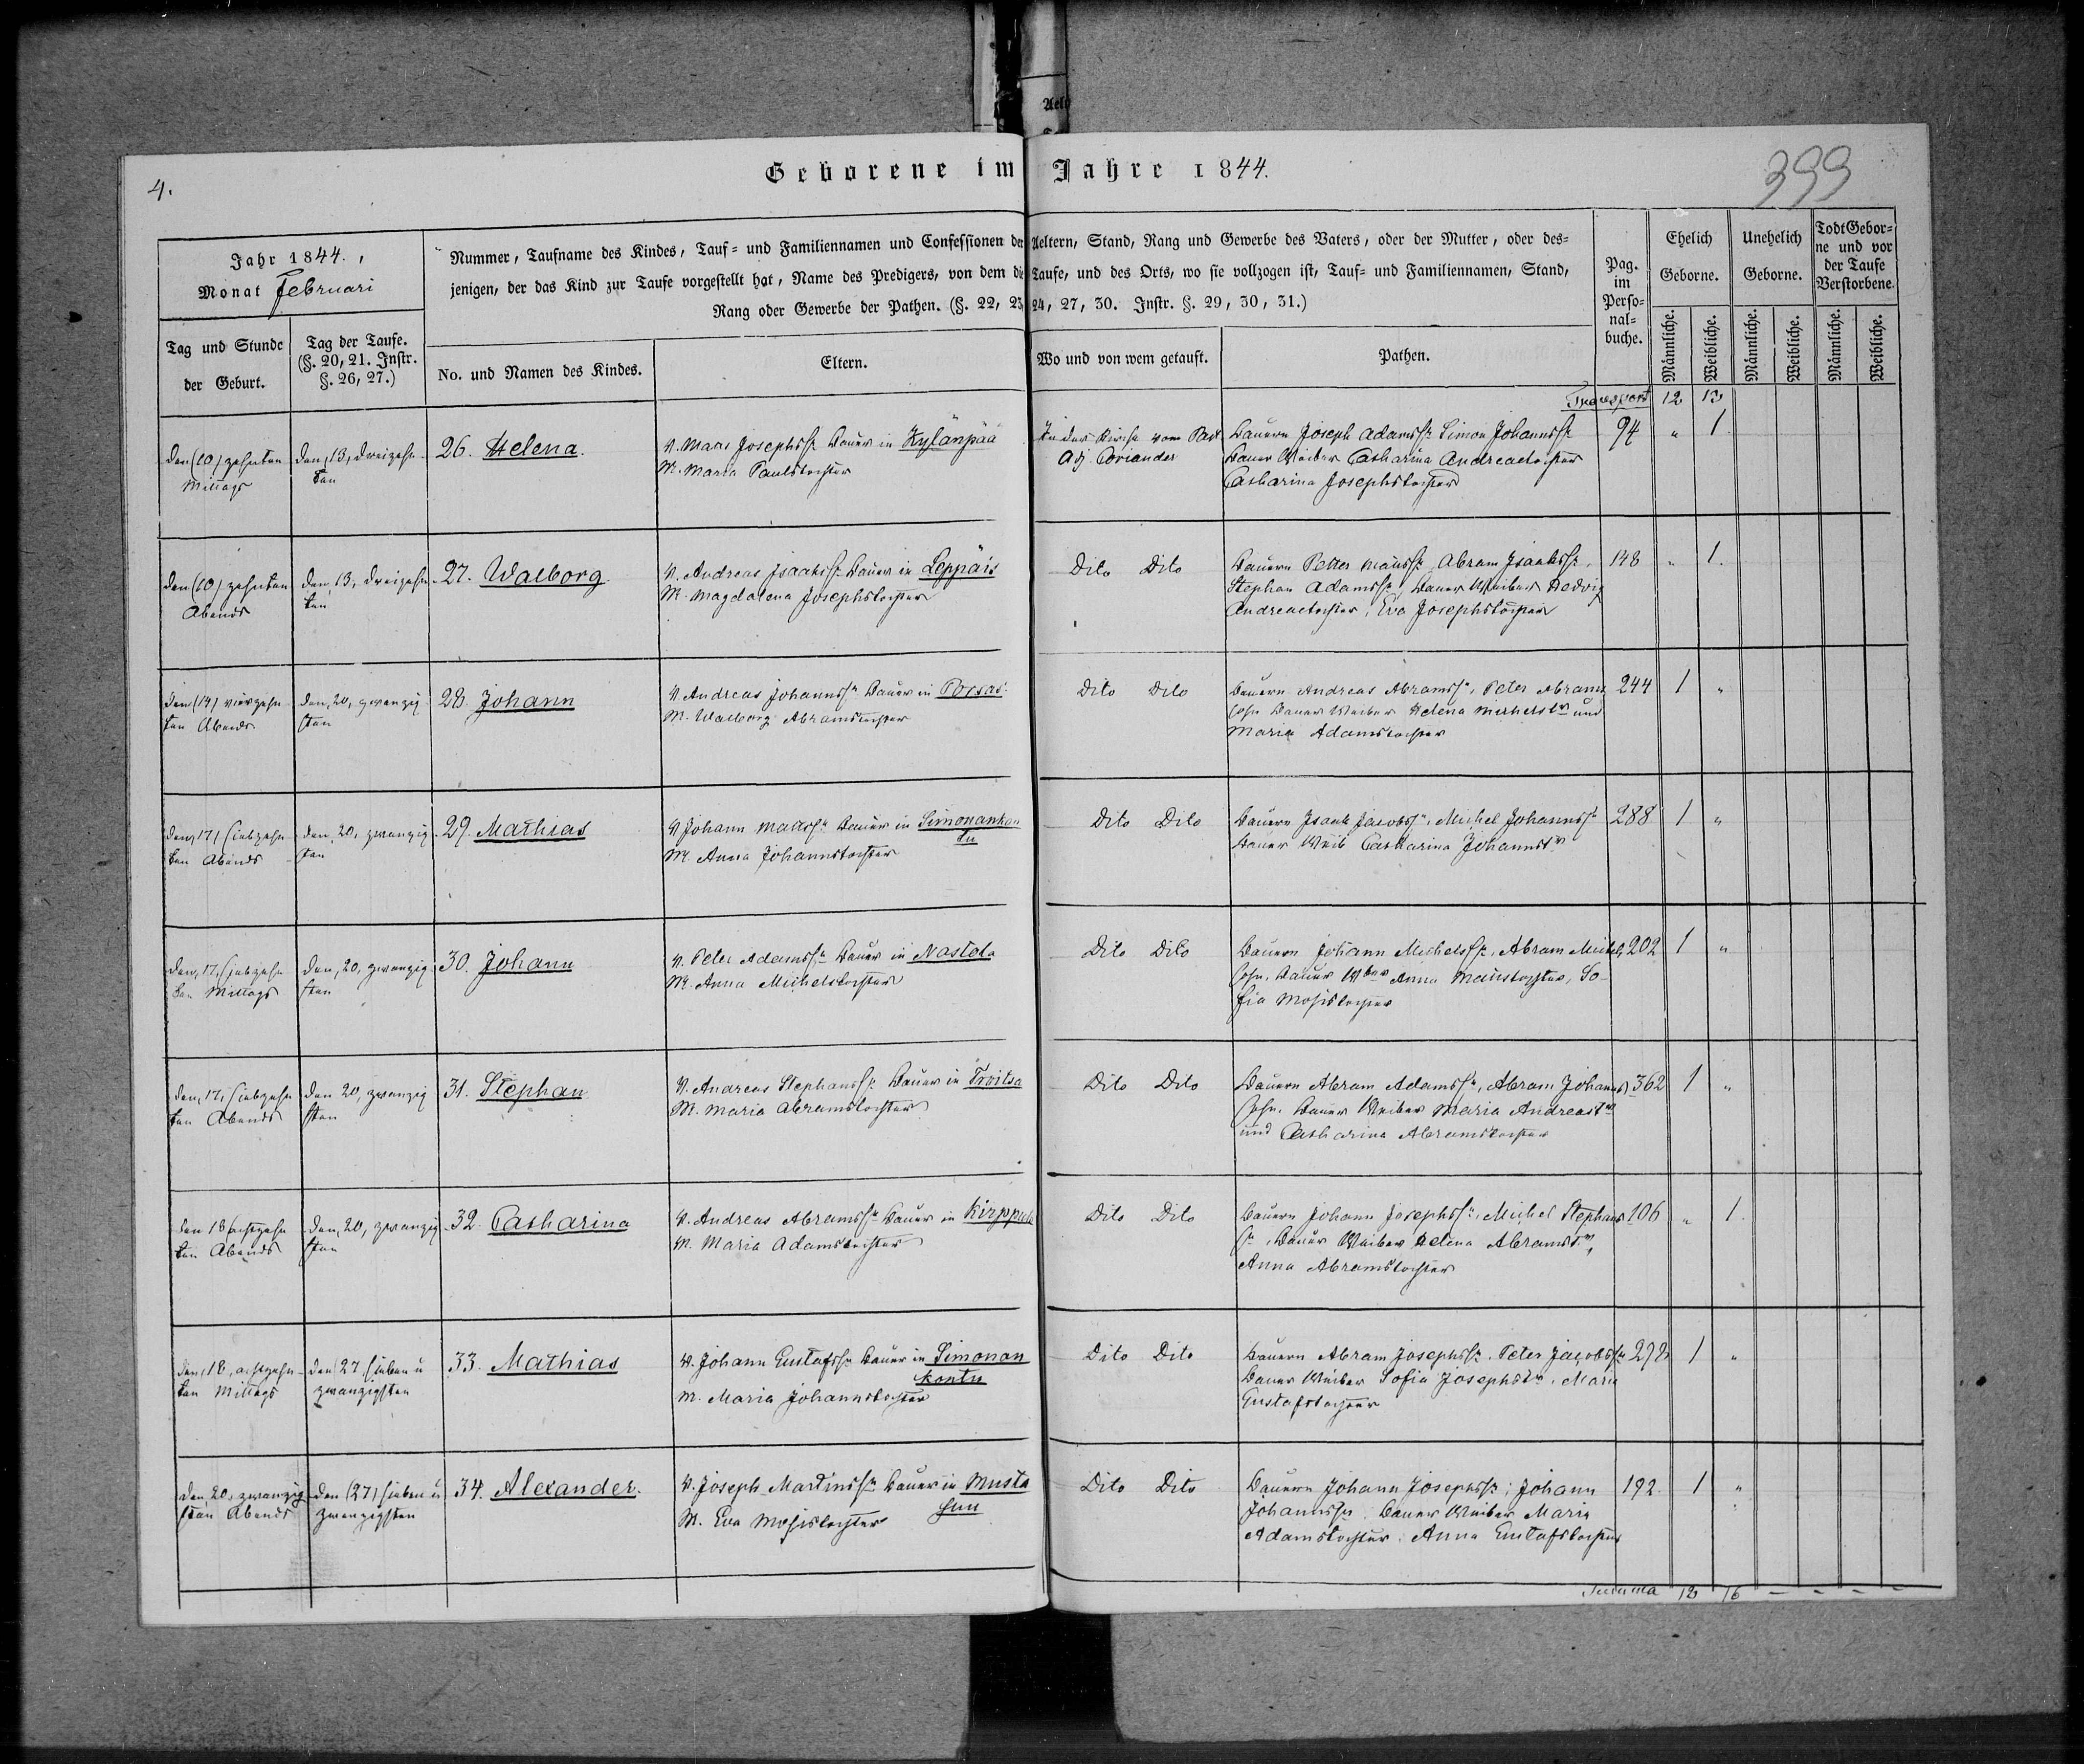 4.
Geborene im Jahre 1844.
399
Jahr 1844.,
Monat Februari
Tag und Stunde
der Geburt.
Tag der Taufe.
(§. 20, 21. Instr.
§. 26, 27.)
Nummer, Taufname des Kindes, Tauf= und Familiennamen und Confessionen der Aeltern, Stand, Rang und Gewerbe des Vaters, oder der Mutter, oder des=
jenigen, der das Kind zur Taufe vorgestellt hat, Name des Predigers, von dem die Taufe, und des Orts, wo sie vollzogen ist, Tauf= und Familiennamen, Stand,
Rang oder Gewerbe der Pathen. (§. 22, 23, 24, 27, 30. Instr. §. 29, 30, 31.)
No. und Namen des Kindes.
Eltern.
Wo und von wem getauft.
Pathen.
Pag.
im
Perso=
nal=
buche.
Ehelich
Geborne.
Unehelich
Geborne.
Todt Gebor=
ne und vor
der Taufe
Verstorbene.
Männliche.
Weibliche.
Männliche.
Weibliche.
Männliche.
Weibliche.
Transport 12 13
den (10) zehnten
Mittags
den, 13, dreizehn
ten
26. Helena.
V. Maas Josephssn Bauer in Kylänpää
M. Maria Paulstochter
In der Kirche vom Past
Adj. Coriander
Bauern Joseph Adamssn Simon Johannssn
Bauer Weiber Catharina Andreaetochter
Catharina Josephstochter
94 " 1
den (10) zehnten
Abends
den, 13, dreizehn
ten
27. Walborg
V. Andreas Isaakssn Bauer in Leppäis
M. Magdalena Josephstochter
Dito Dito
Bauern Petter Maussn, Abram Isaakssn,
Stephan Adamssn, Bauer Weiber Hedvig
Andreaetochter, Eva Josephstochter
148 " 1.
den (14) vierzehn
ten Abends
den, 20, zwanzig
sten
28. Johann
V. Andreas Johannssn Bauer in Porsas
M. Walborg Abramstochter
Dito Dito
Bauern Andreas Abramssn, Peter Abrams
sohn Bauer Weiber Helena Michelstr und
Maria Adamstochter
244 1 "
den, 17, siebzehn
ten Abends
den, 20, zwanzig
sten
29. Mathias
V. Johann Maassn Bauer in Simonankon
tu
M. Anna Johannstochter
Dito Dito
Bauern Isaak Jacobssn, Michel Johannssn
Bauer Weib Catharina Johannstr
288 1 "
den, 17, siebzehn
ten Mittags
den, 20, zwanzig
sten
30. Johann
V. Peter Adamssn Bauer in Nastola
M. Anna Michelstochter
Dito Dito
Bauern Johann Michelssn, Abram Michels
sohn, Bauer Wber Anna Maustochter, So-
fia Mosistochter
202 1 "
den, 17, siebzehn
ten Abends
den 20, zwanzig
sten
31. Stephan
V. Andreas Stephanssn Bauer in Troitsa
M. Maria Abramstochter
Dito Dito
Bauern Abram Adamssn, Abram Johanns
sohn. Bauer Weiber Maria Andreastr
und Catharina Abramstochter
362 1 "
den 18 achtzehn
ten Abends
den, 20, zwanzig
sten
32. Catharina
V. Andreas Abramssn Bauer in Kirppula
M. Maria Adamstochter
Dito Dito
Bauern Johann Josephssn, Michel Stephans
sn, Bauer Weiber Helena Abramstr,
Anna Abramstochter
106 " 1.
den, 18, achtzehn
ten Mittags
den 27, sieben u
zwanzigsten
33. Mathias
V. Johann Gustafssn Bauer in Simonan
kontu
M. Maria Johannstochter
Dito Dito
Bauern Abram Josephssn. Peter Jacobssn
Bauer Weiber Sofia Josephstr. Maria
Gustafstochter
298 1 "
den, 20, zwanzig
sten Abends
den (27) sieben u
zwanzigsten
34. Alexander.
V. Joseph Martinssn Bauer in Musta
suu
M. Eva Mosistochter
Dito Dito
Bauern Johann Josephssn; Johann
Johannssn. Bauer Weiber Maria
Adamstochter. Anna Gustafstochter
192. 1 "
Summa 18 16 - - - -